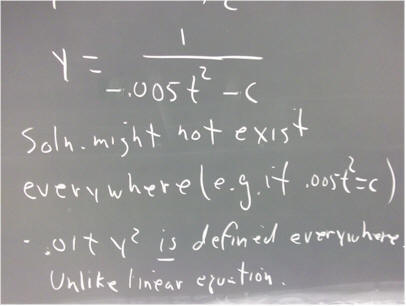 y = 1 / (-.005t² - c)
Soln. might not exist
everywhere (e.g. if .005t²=c)
- .01t y² is defined everywhere.
Unlike linear equation.